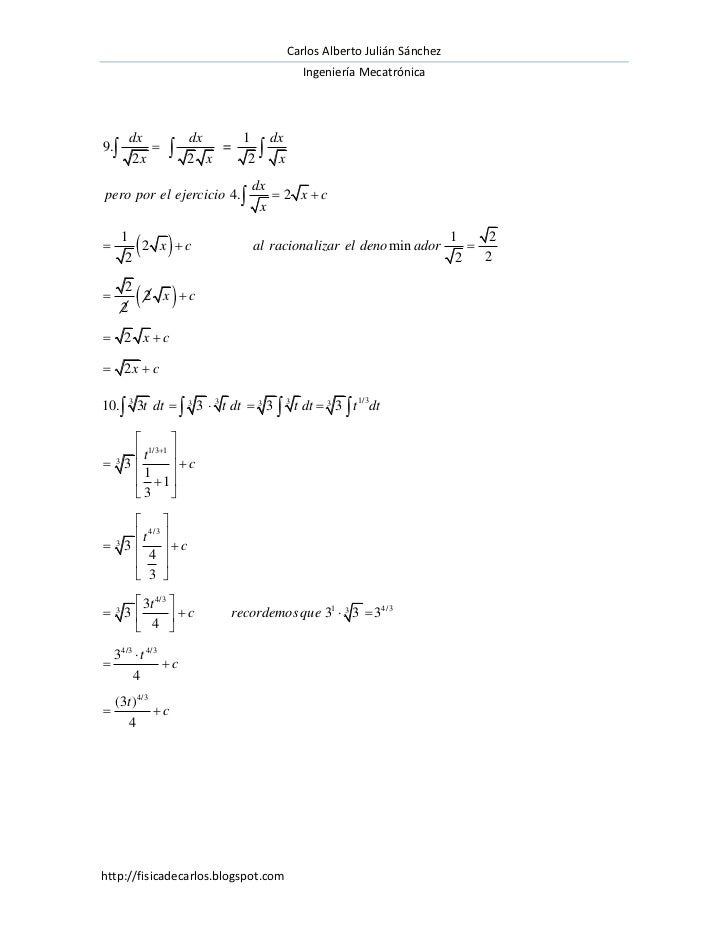 Carlos Alberto Julián Sánchez
Ingeniería Mecatrónica
9.∫ dx/√(2x) = ∫ dx/(√2 √x) = 1/√2 ∫ dx/√x
pero por el ejercicio 4.∫ dx/√x = 2√x + c
= 1/√2 (2√x) + c al racionalizar el deno min ador 1/√2 = √2/2
= √2/2 (2√x) + c
= √2√x + c
= √(2x) + c
10.∫ ∛(3t) dt = ∫ ∛3 · ∛t dt = ∛3 ∫ ∛t dt = ∛3 ∫ t^(1/3) dt
= ∛3 [t^(1/3+1) / (1/3 + 1)] + c
= ∛3 [t^(4/3) / (4/3)] + c
= ∛3 [3t^(4/3) / 4] + c recordemos que 3^1 · ∛3 = 3^(4/3)
= 3^(4/3) · t^(4/3) / 4 + c
= (3t)^(4/3) / 4 + c
http://fisicadecarlos.blogspot.com